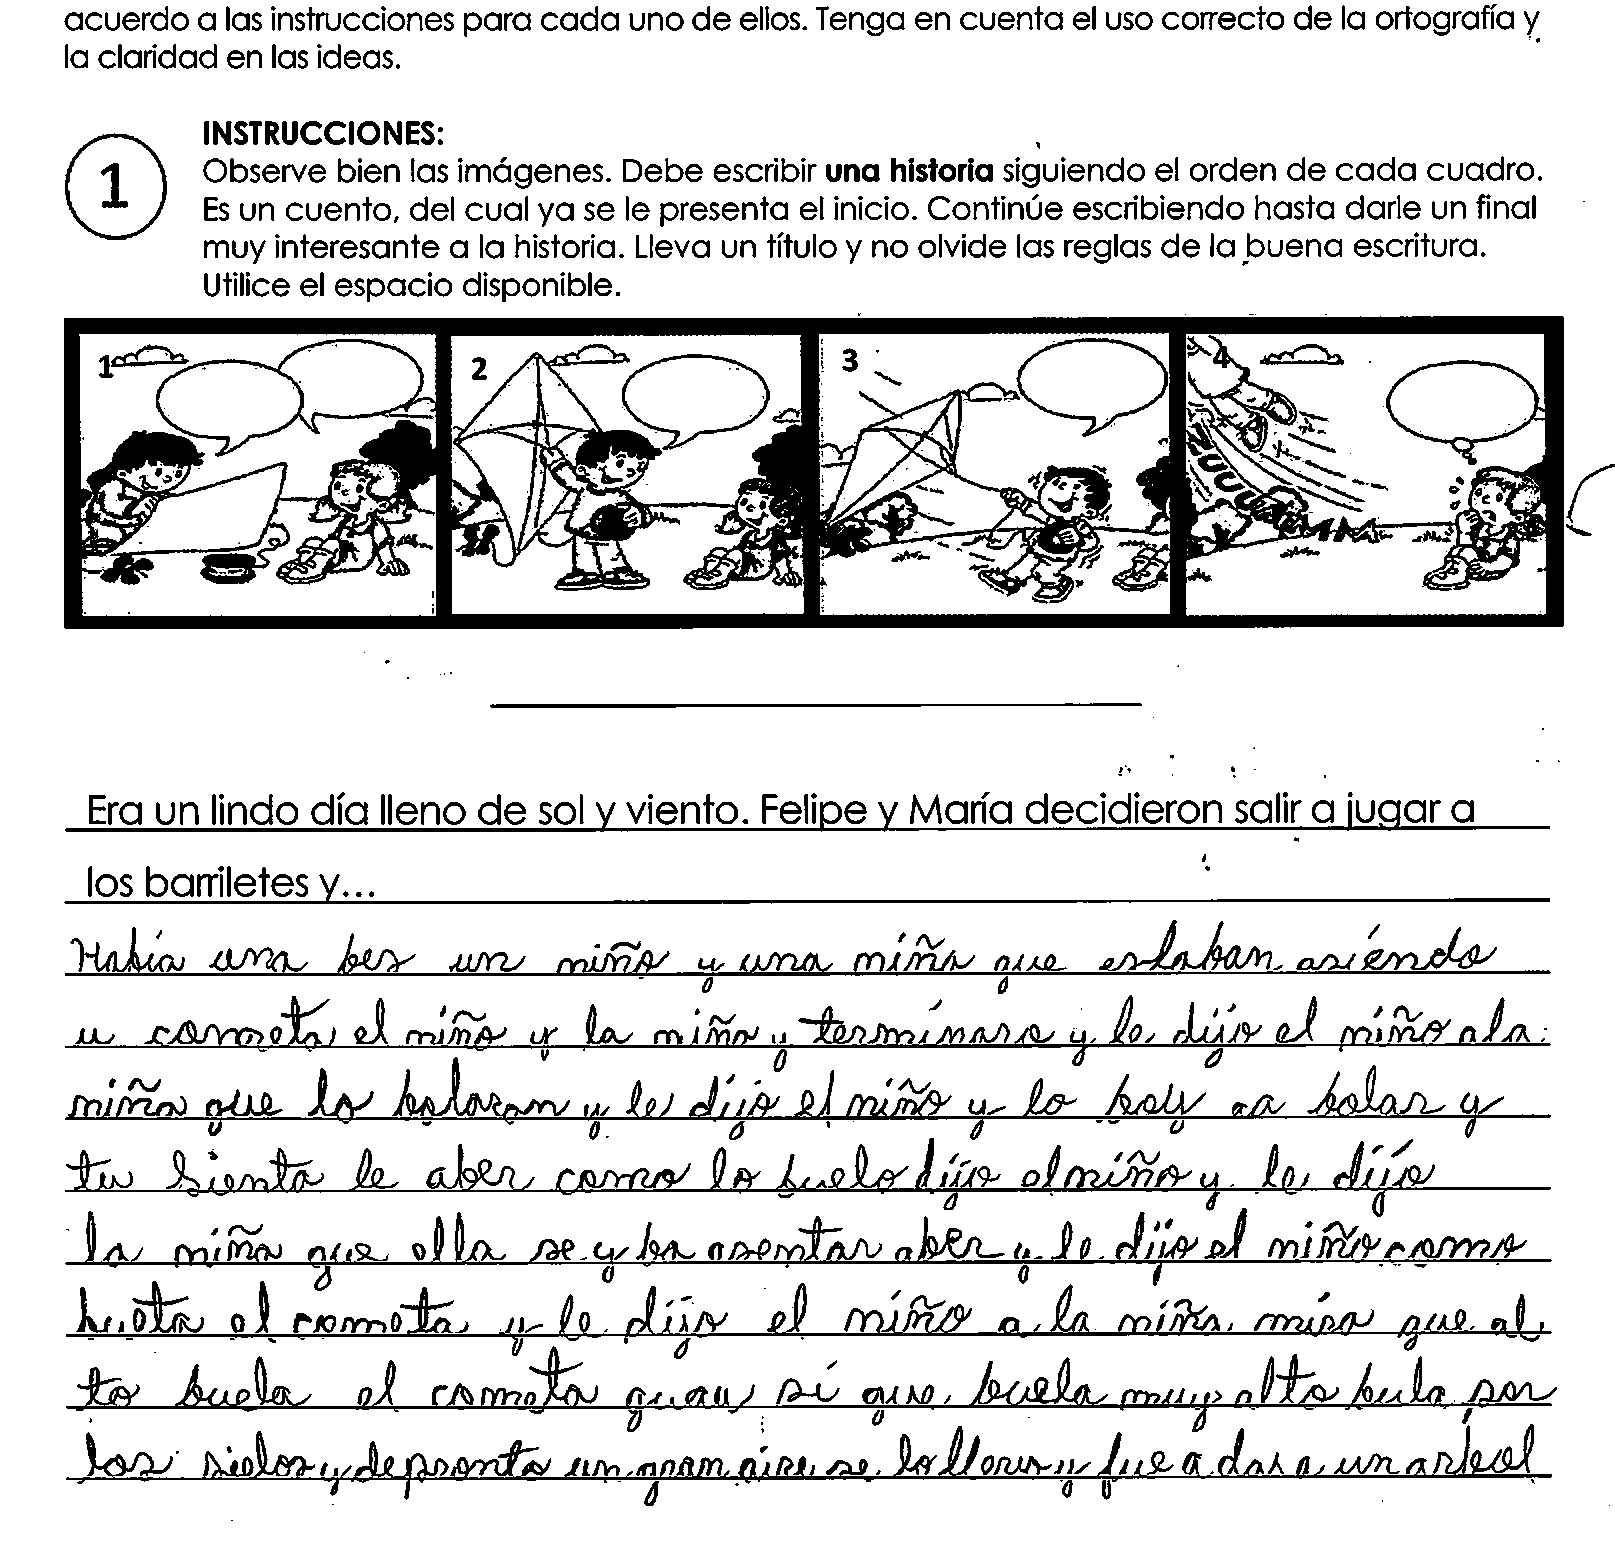 acuerdo a las instrucciones para cada uno de ellos. Tenga en cuenta el uso correcto de la ortografía y
la claridad en las ideas.
1
INSTRUCCIONES:
Observe bien las imágenes. Debe escribir una historia siguiendo el orden de cada cuadro.
Es un cuento, del cual ya se le presenta el inicio. Continúe escribiendo hasta darle un final
muy interesante a la historia. Lleva un título y no olvide las reglas de la buena escritura.
Utilice el espacio disponible.
1 2 3 4
Era un lindo día lleno de sol y viento. Felipe y María decidieron salir a jugar a
los barriletes y...
Había una bes un niño y una niña que estaban asiendo
u cometa el niño y la niña y terminaro y le dijo el niño ala
niña que lo bolaran y le dijo el niño y lo boy a bolar y
tu sienta le aber como lo buelo dijo el niño y le dijo
la niña que ella se y ba asentar aber y le dijo el niño como
el cometa y le dijo el niño a la niña mira que al
to buela el cometa guau si que buela muy alto bula por
los sielos y de pronto un gran aire se lo y fue a dar a un arbol